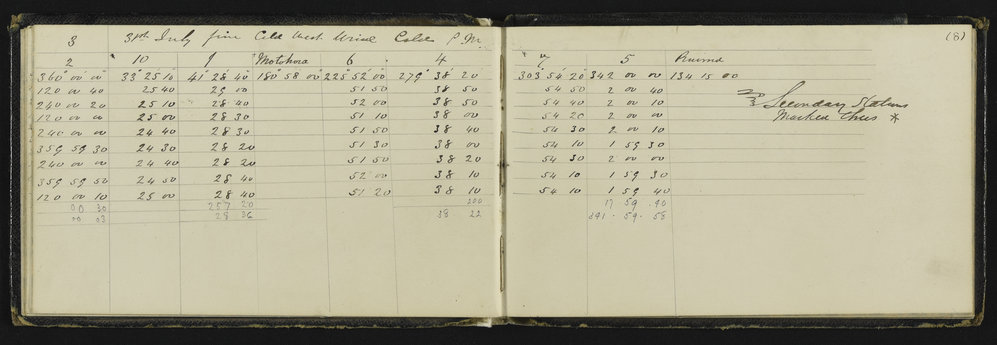 (8)
3 31st July fine Cold West Wind Cold P.M.
2 10 9 Motohora 6 4 7 5 Ruined
360° 00' 00" 33° 25 10 41° 28' 40 180 58 00 225 52 00 279° 38 20 303 54 20 342 00 00 134 15 00
120 00 40 25 40 29 00 51 50 38 50 54 50 2 00 40
240 00 20 25 10 28 40 52 00 38 50 54 40 2 00 10
120 00 00 25 00 28 30 51 10 38 00 54 20 2 00 00
240 00 00 24 40 28 30 51 50 38 40 54 30 2 00 10
359 59 30 24 30 28 20 51 30 38 00 54 10 1 59 30
240 00 00 24 40 28 20 51 50 38 20 54 30 2 00 00
359 59 50 24 50 28 40 52 00 38 10 54 10 1 59 30
120 00 10 25 00 28 40 51 20 38 10 54 10 1 59 40
00 30 257 20 200 17 59 40
00 03 28 36 38 22 341 59 58
Secondary Stations
Marked thus *